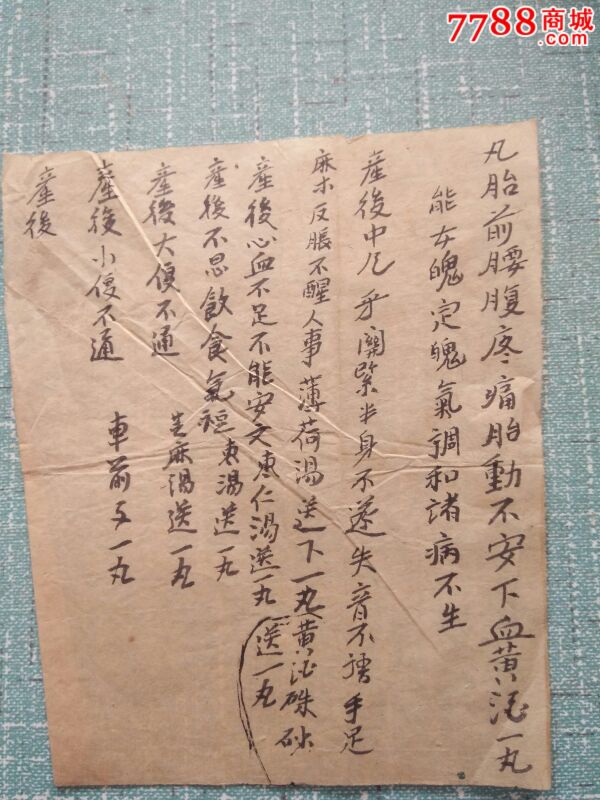 7788商城
.com
凡胎前腰腹疼痛胎動不安下血黃酒一丸
能安魄定魄氣調和諸病不生
產後中風牙關緊半身不遂失音不語手足
麻木反脹不醒人事薄荷湯送下一丸黃酒硃砂
送一丸
產後心血不足不能安文棗仁湯送一丸
產後不思飲食氣短棗湯送一丸
產後大便不通
芝麻湯送一丸
產後小便不通
車前子一丸
產後